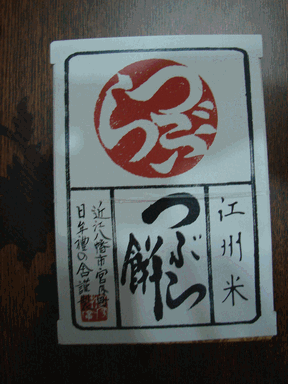 つぶら
江州米
つぶら餅
近江八幡市宮内町
日牟禮の舎謹製